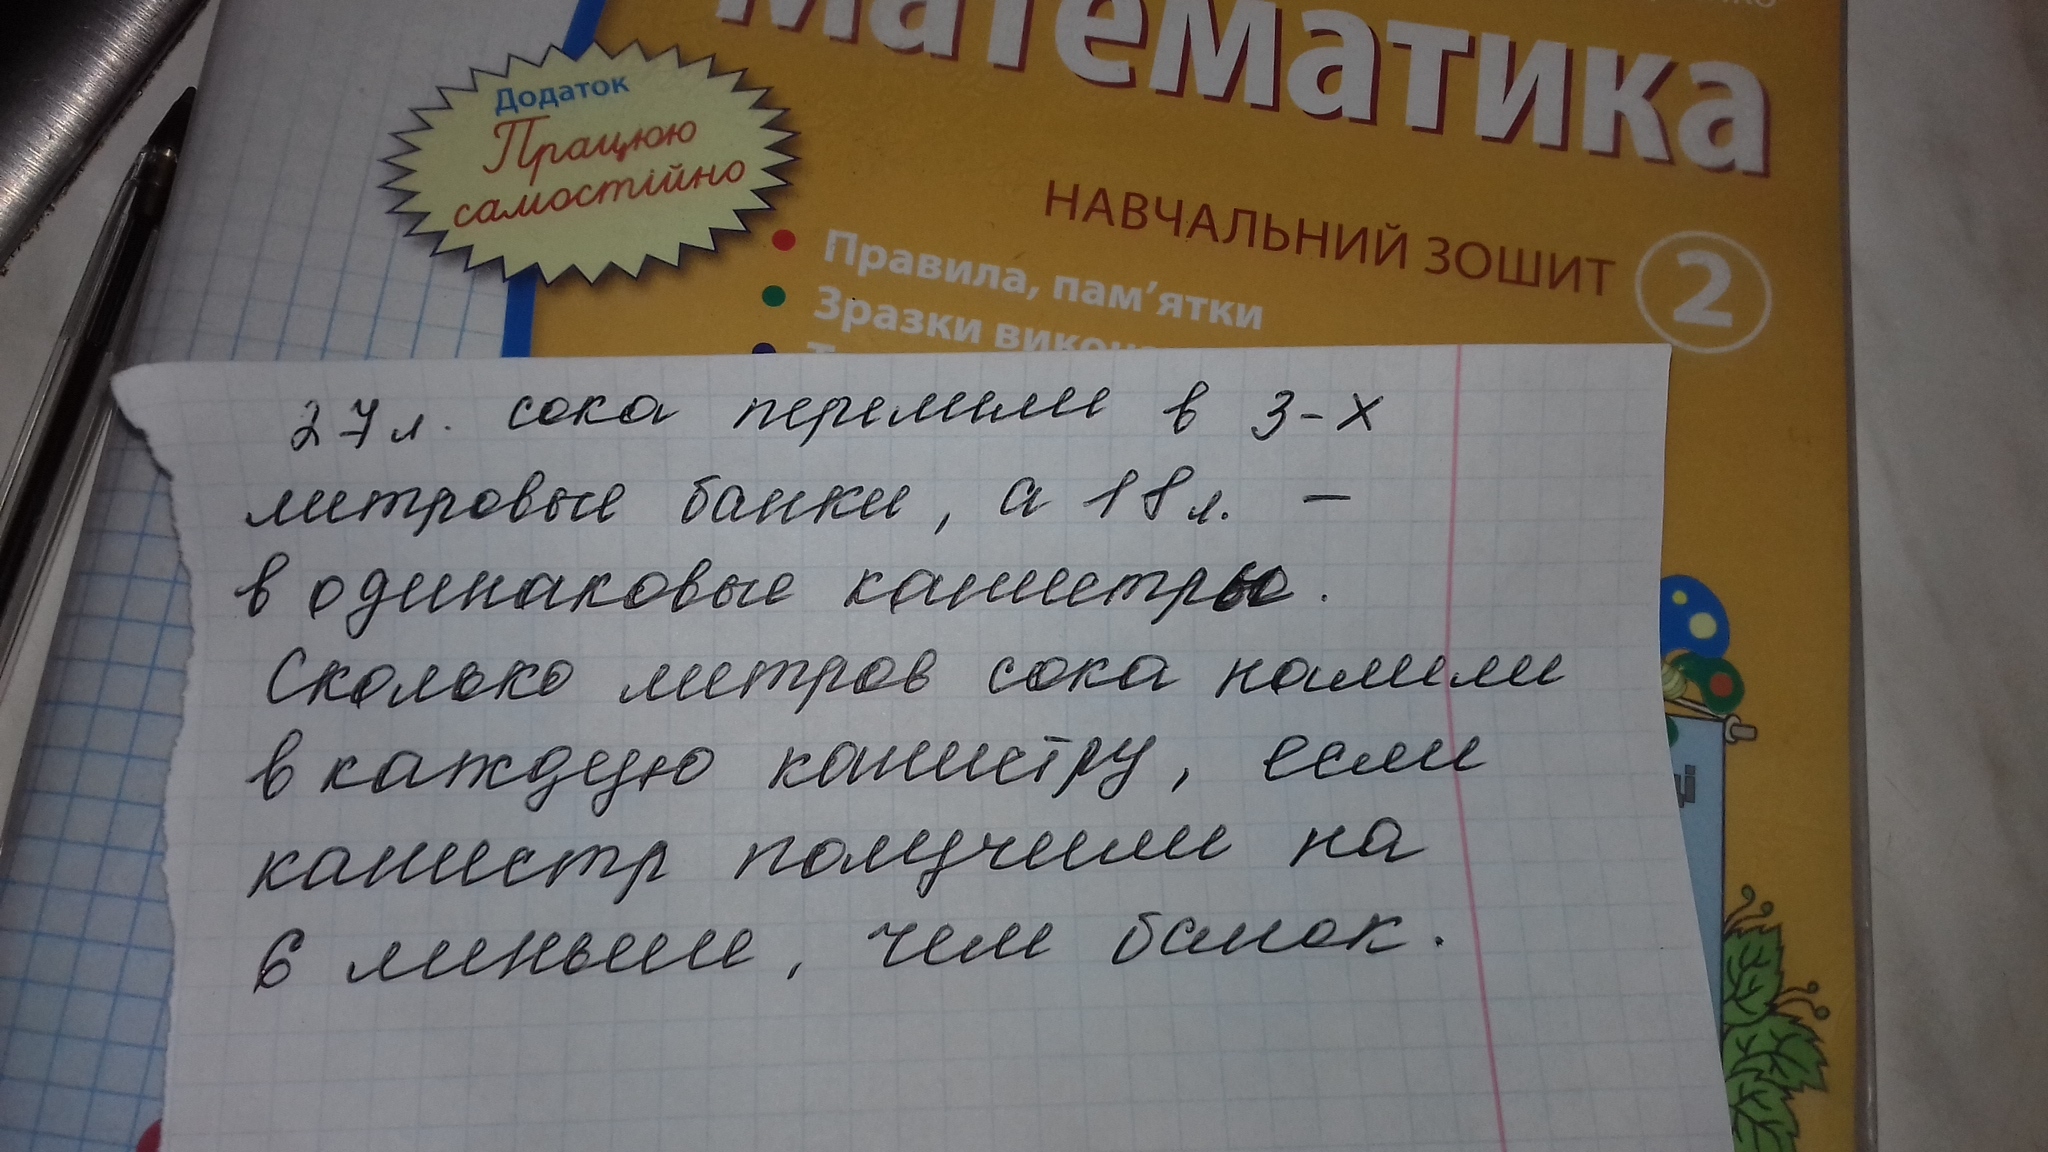 Математика
Додаток
Працюю
самостійно
НАВЧАЛЬНИЙ ЗОШИТ 2
Правила, пам'ятки
Зразки
27л. сока перелили в 3-х
литровые банки, а 18л. –
в одинаковые канистры.
Сколько литров сока налили
в каждую канистру, если
канистр получили на
6 меньше, чем банок.